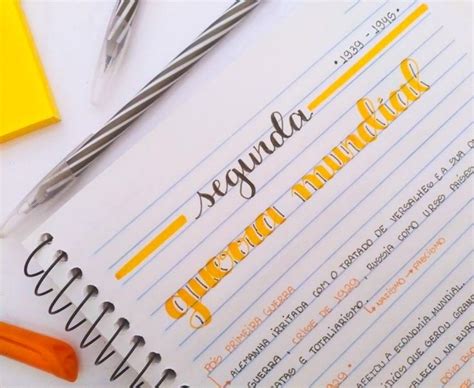 • 1939 - 1945 •
segunda
guerra mundial
PÓS PRIMEIRA GUERRA
ALEMANHA IRRITADA COM O TRATADO DE VERSALHES E A SUA
GUERRA, CRISE DE 1929, RÚSSIA COMO URSS PAÍSES
E TOTALIARISMO. → NAZISMO → FASCISMO
AFETOU A ECONOMIA MUNDIAL
QUE GEROU